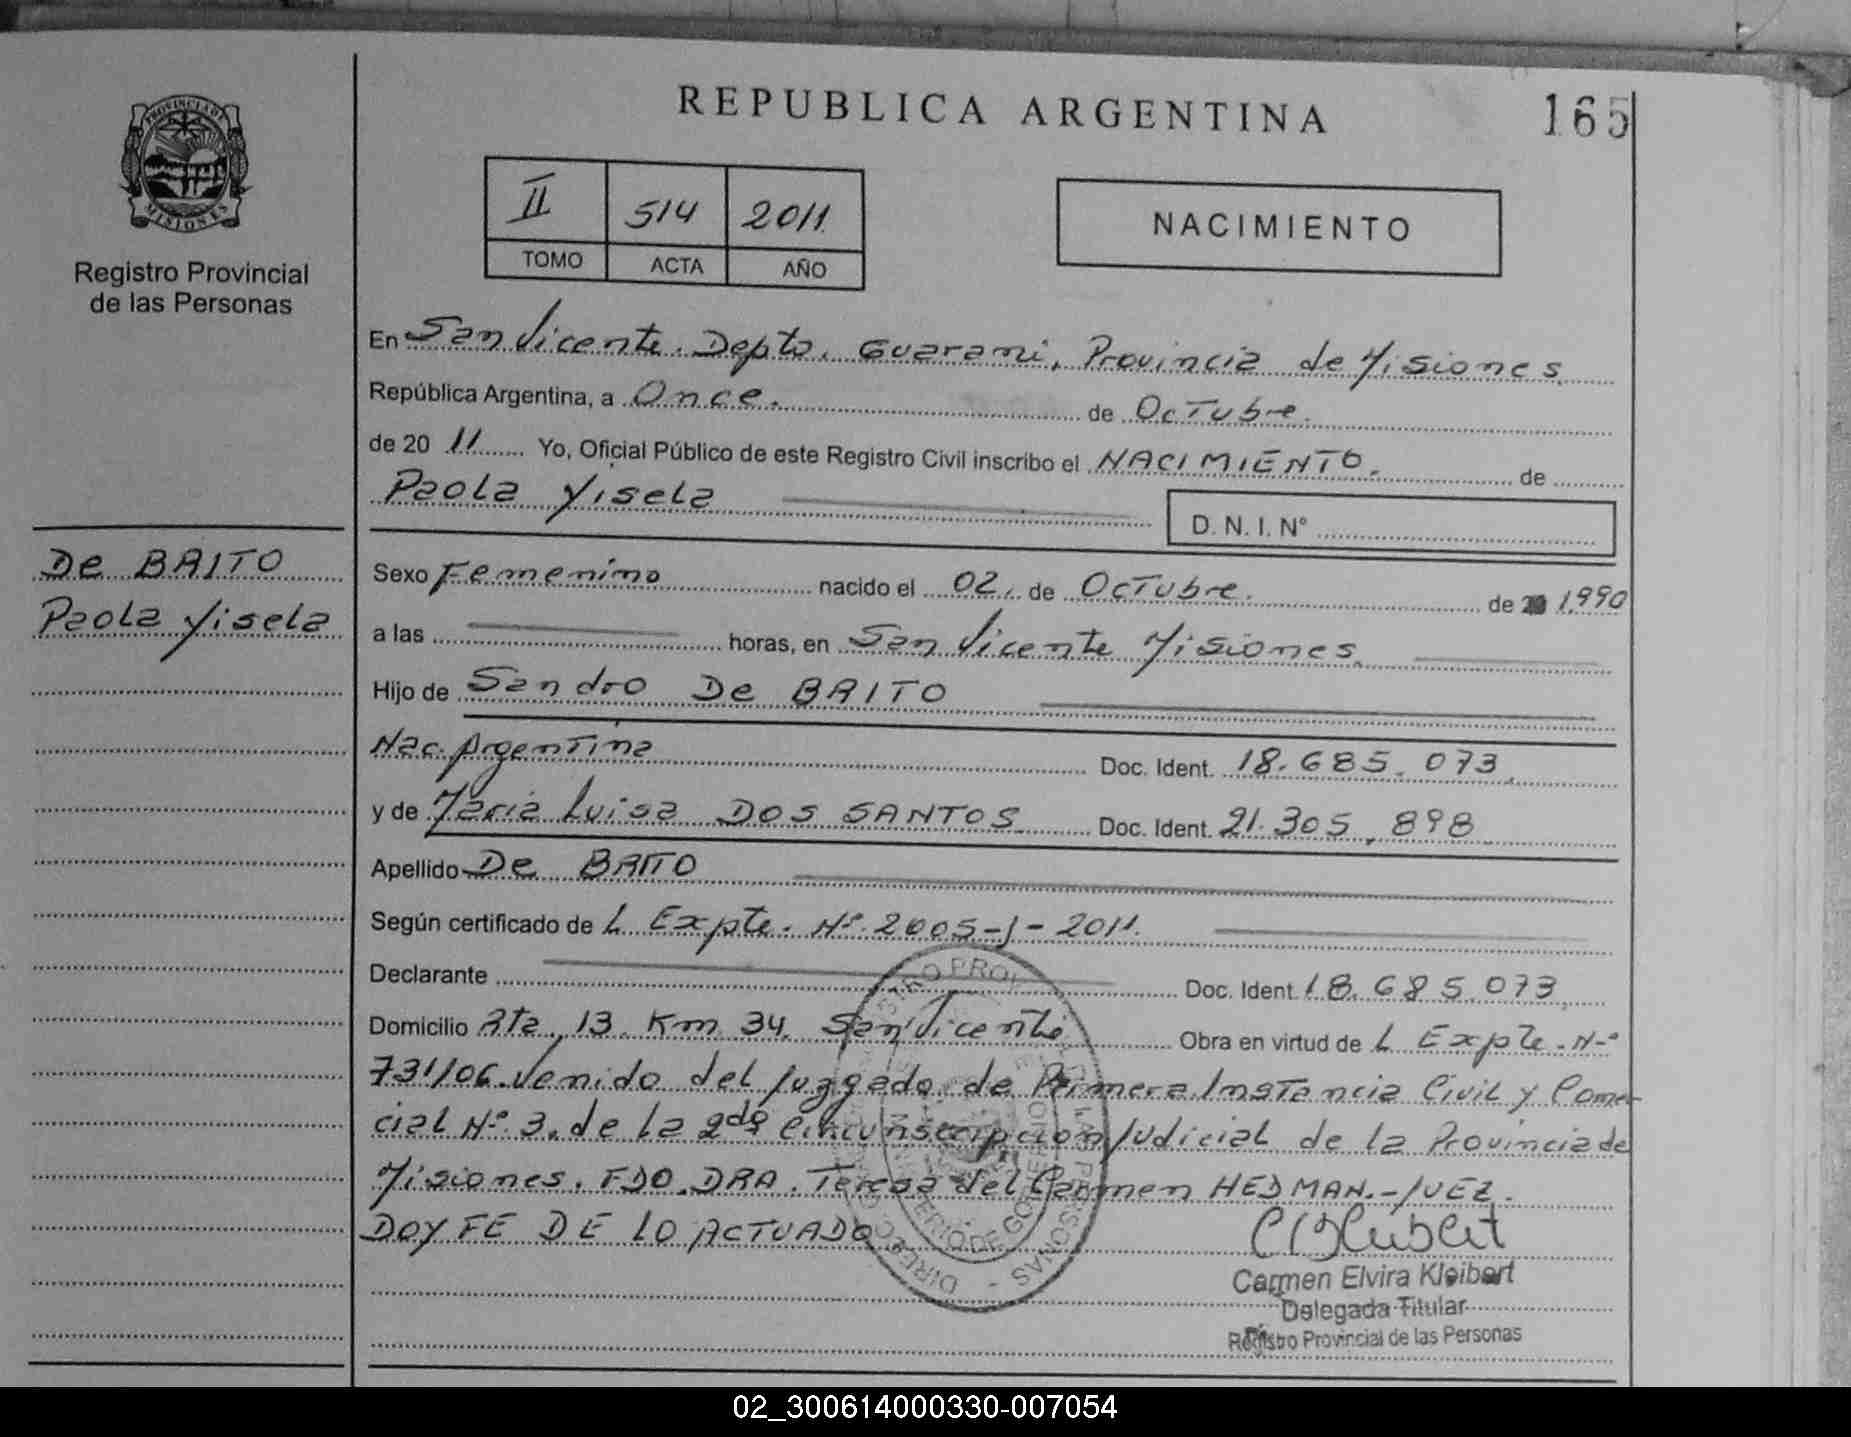 REPUBLICA ARGENTINA
165
PROVINCIA DE
MISIONES
Registro Provincial
de las Personas
II 514 2011
TOMO ACTA AÑO
NACIMIENTO
En San Vicente. Depto. Guarani, Provincia de Misiones
República Argentina, a Once. de Octubre.
de 20 11 Yo, Oficial Público de este Registro Civil inscribo el NACIMIENTO. de
Paola Yisela
D. N. I. N°
De BRITO
Paola Yisela
Sexo Femenino nacido el 02 de Octubre. de 1990
a las horas, en San Vicente Misiones
Hijo de Sandro De BRITO
Nac. Argentina Doc. Ident. 18.685.073
y de Maria Luisa DOS SANTOS Doc. Ident. 21.305.898
Apellido De BRITO
Según certificado de L Expte. Nº 2005-J-2011.
Declarante Doc. Ident. 18.685.073
Domicilio Rta. 13. Km 34. San Vicente Obra en virtud de L Expte. Nº
731/06. Venido del Juzgado de Primera Instancia Civil y Comer-
cial Nº 3. de la 2da Circunscripcion Judicial de la Provincia de
Misiones. FDO. DRA. Teresa del Carmen HEDMAN.-JUEZ.
DOY FE DE LO ACTUADO
Carmen Elvira Kleibert
Delegada Titular
Registro Provincial de las Personas
02_300614000330-007054